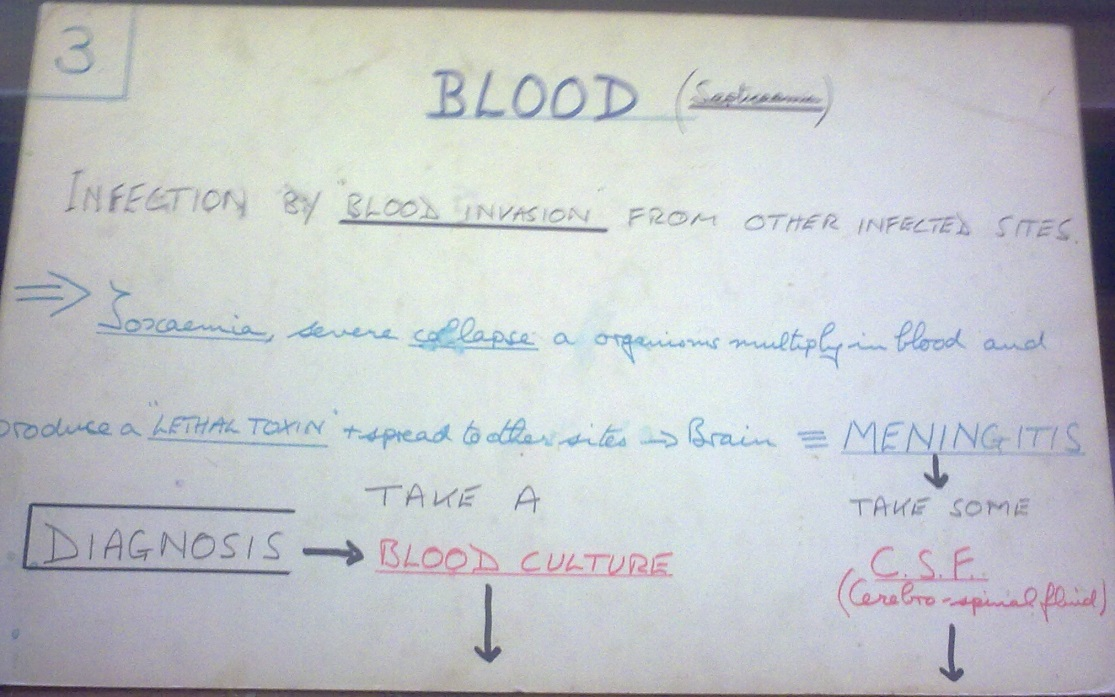 3
BLOOD (Septicaemia)
INFECTION BY "BLOOD INVASION FROM OTHER INFECTED SITES.
⇒ Toxaemia, severe collapse a organisms multiply in blood and
produce a "LETHAL TOXIN" + spread to other sites → Brain ≡ MENINGITIS
TAKE A
TAKE SOME
DIAGNOSIS → BLOOD CULTURE
C.S.F.
(Cerebro-spinal fluid)